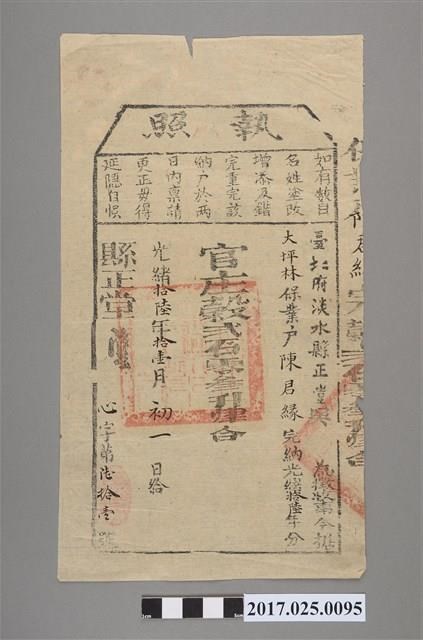 執照
如有數目
名姓塗改
增添及錯
完重完該
納戶於兩
日內稟請
更正毋得
延隱自悞
臺北府淡水縣正堂 為徵收事今據
大坪林保業戶陳君緣完納光緒拾陸年分
官庄穀貳石零叁升肆合
光緒拾陸年拾壹月初一日給
縣正堂
心字第陸拾壹號
0 1cm
2cm
2017.025.0095